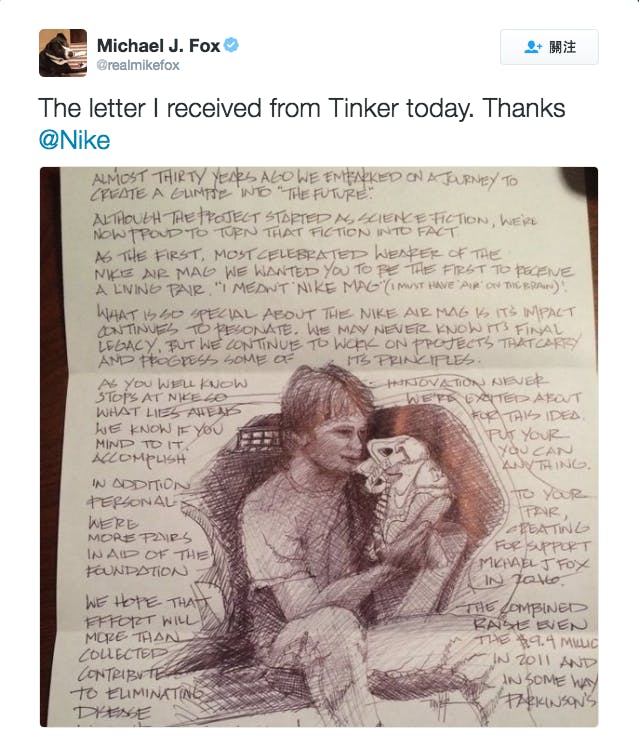 Michael J. Fox
@realmikefox
關注
The letter I received from Tinker today. Thanks
@Nike
ALMOST THIRTY YEARS AGO WE EMBARKED ON A JOURNEY TO
CREATE A GLIMPSE INTO "THE FUTURE".
ALTHOUGH THE PROJECT STARTED AS SCIENCE FICTION, WE'RE
NOW PROUD TO TURN THAT FICTION INTO FACT
AS THE FIRST, MOST CELEBRATED WEARER OF THE
NIKE AIR MAG WE WANTED YOU TO BE THE FIRST TO RECEIVE
A LIVING PAIR. "I MEANT 'NIKE MAG' (I MUST HAVE 'AIR' ON THE BRAIN)'.
WHAT IS SO SPECIAL ABOUT THE NIKE AIR MAG IS ITS IMPACT
CONTINUES TO RESONATE. WE MAY NEVER KNOW ITS FINAL
LEGACY, BUT WE CONTINUE TO WORK ON PROJECTS THAT CARRY
AND PROGRESS SOME OF ITS PRINCIPLES.
AS YOU WELL KNOW INNOVATION NEVER
STOPS AT NIKE SO WE'RE EXCITED ABOUT
WHAT LIES AHEAD FOR THIS IDEA.
WE KNOW IF YOU PUT YOUR
MIND TO IT, YOU CAN
ACCOMPLISH ANYTHING.
IN ADDITION TO YOUR
PERSONAL PAIR,
WE'RE CREATING
MORE PAIRS FOR SUPPORT
IN AID OF THE MICHAEL J FOX
FOUNDATION IN 2016.
WE HOPE THAT THE COMBINED
EFFORT WILL RAISE EVEN
MORE THAN THE $9.4 MILLIO
COLLECTED IN 2011 AND
CONTRIBUTE IN SOME WAY
TO ELIMINATING PARKINSON'S
DISEASE